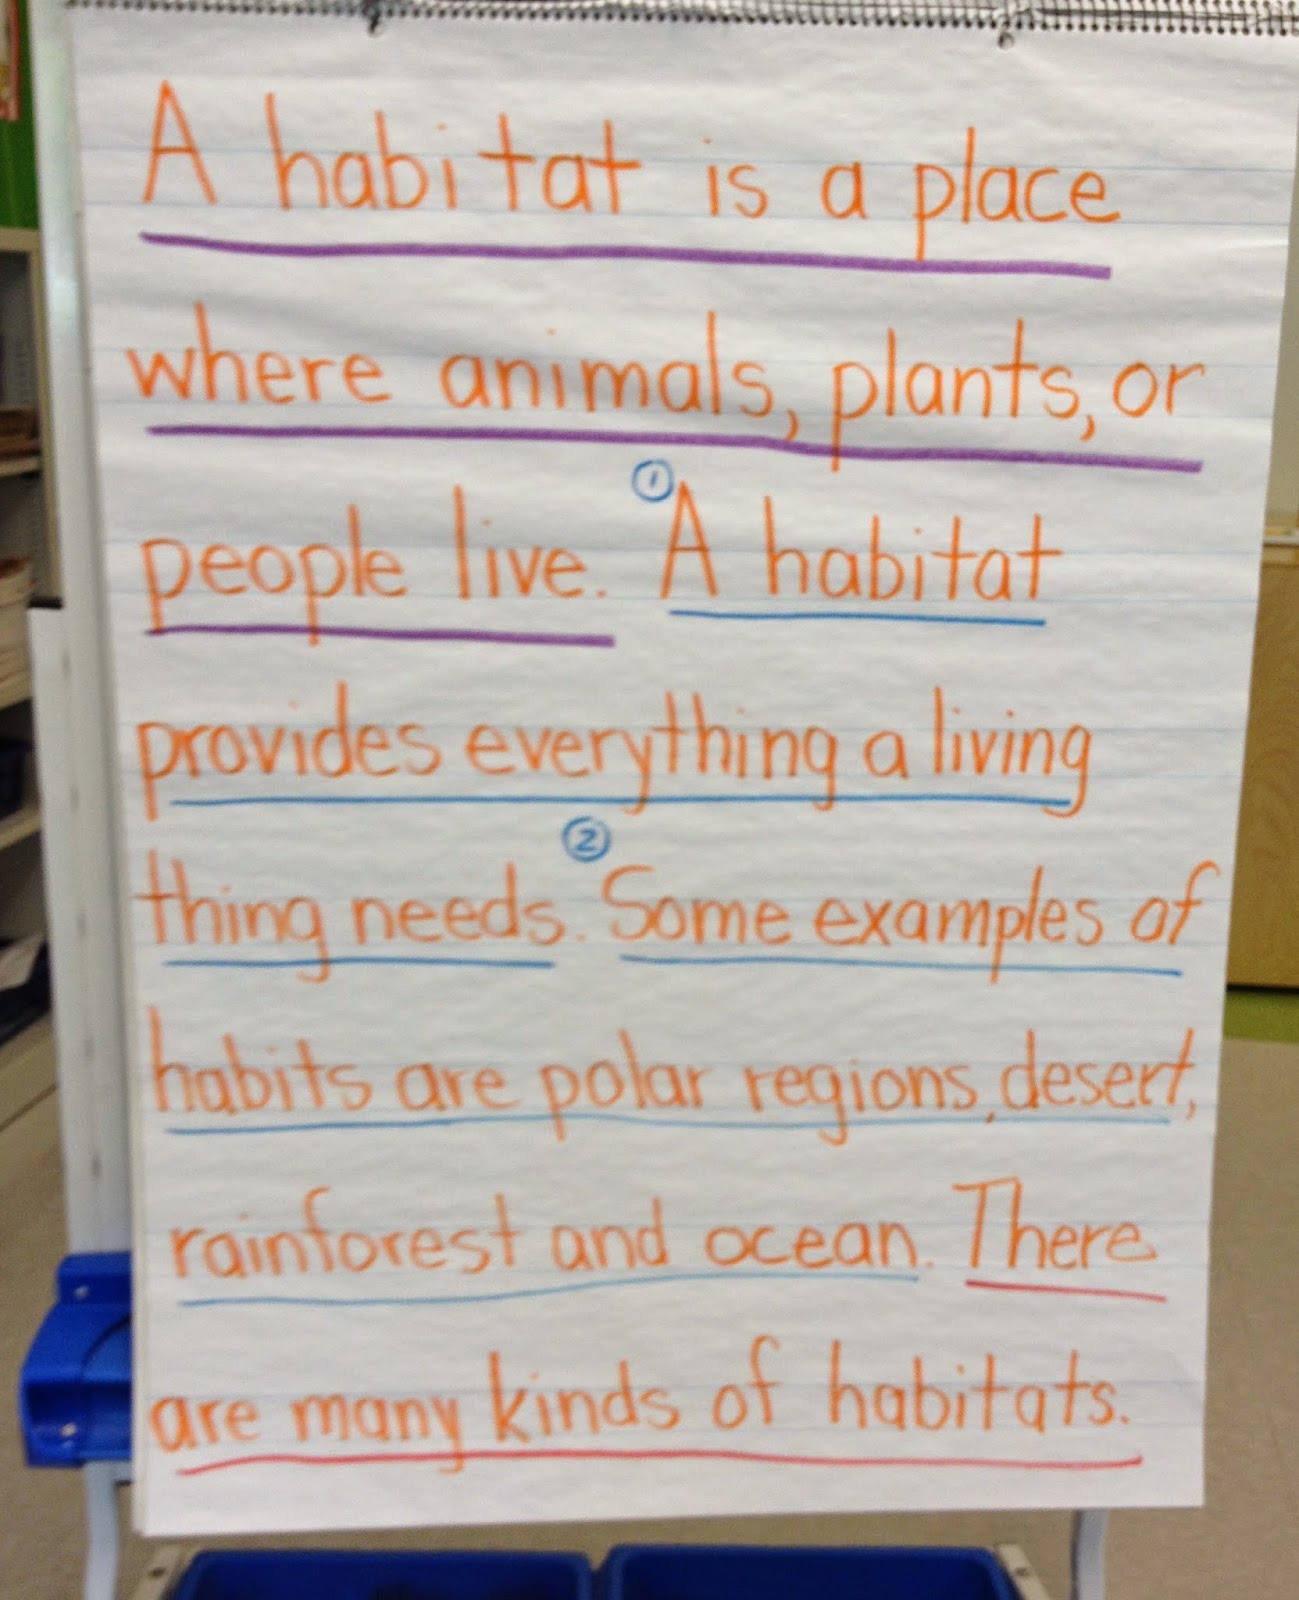 A habitat is a place
where animals, plants, or
people live. ① A habitat
provides everything a living
thing needs. ② Some examples of
habits are polar regions, desert,
rainforest and ocean. There
are many kinds of habitats.